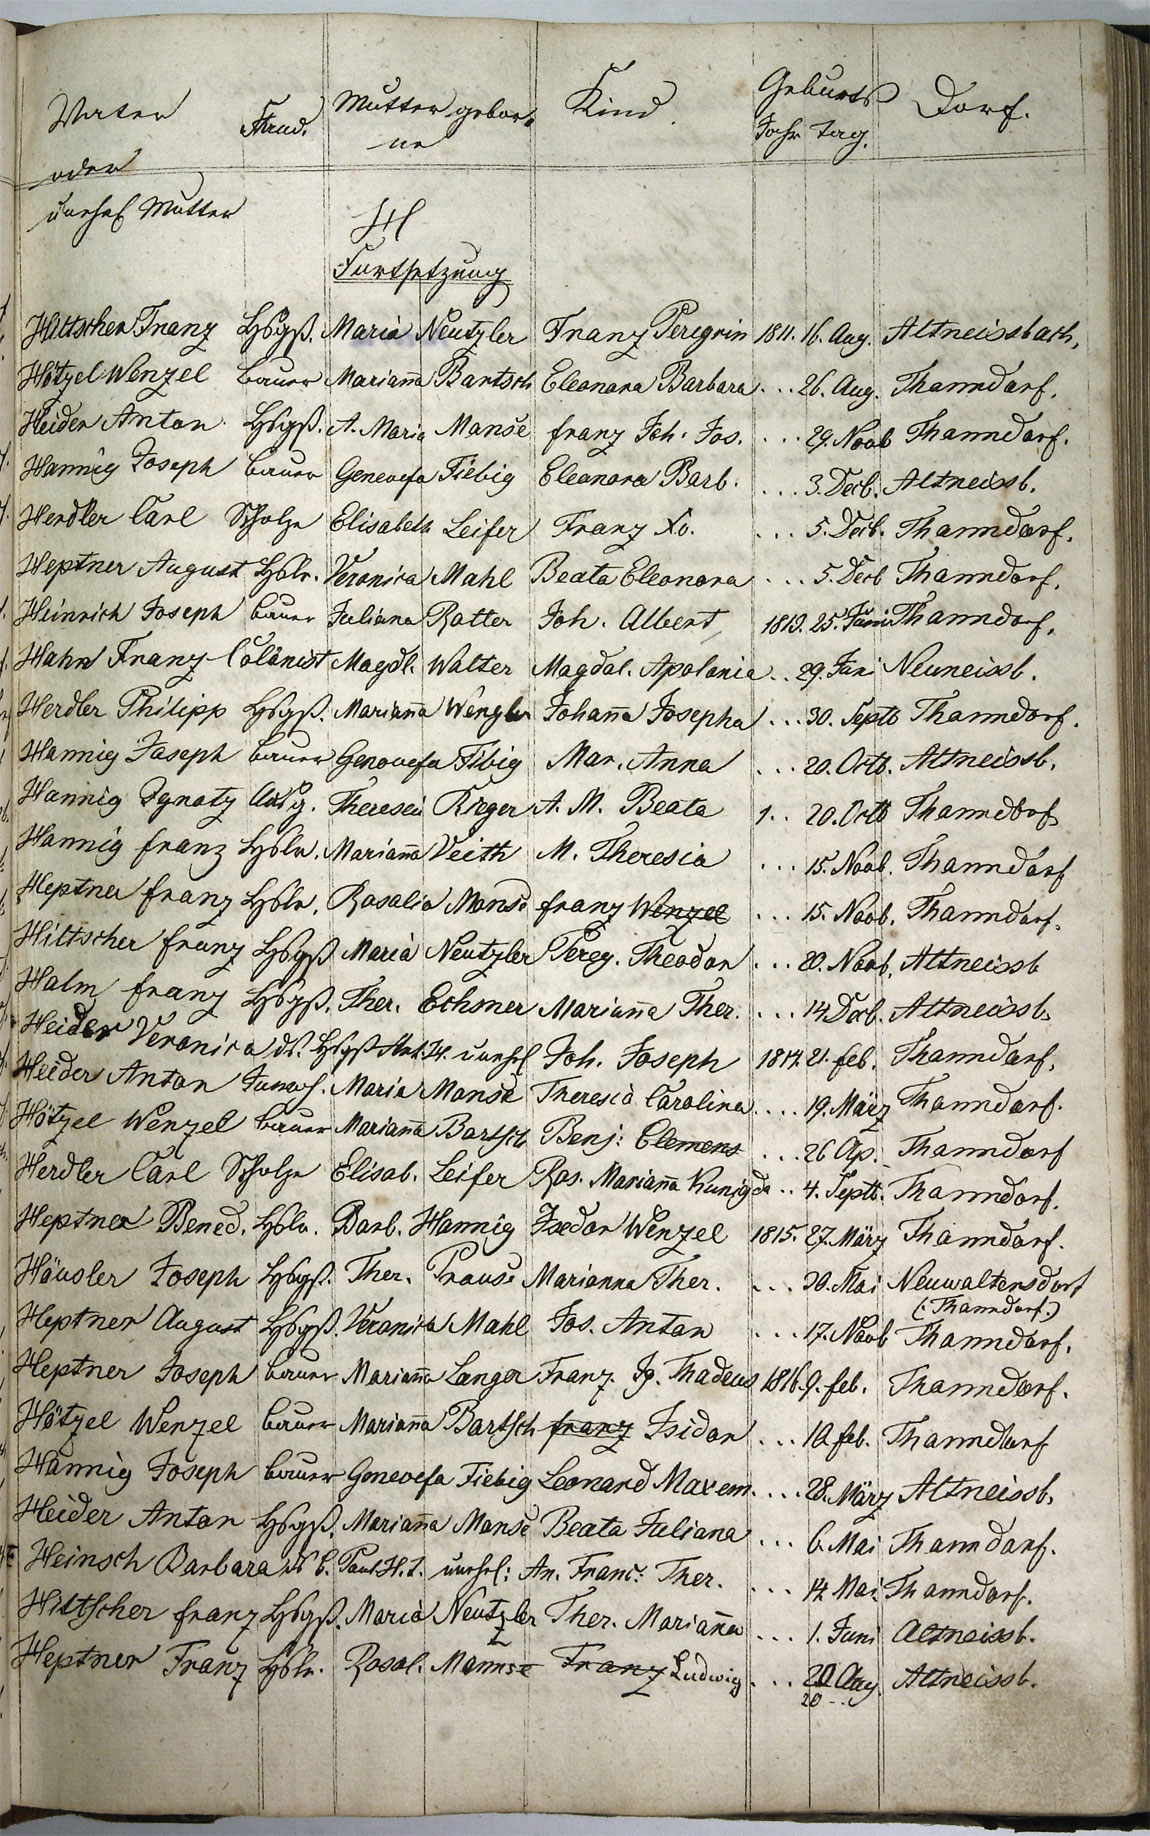 Vater Stand. Mutter gebor= Kind. Geburts Dorf.
ne Jahr tag.
oder
unehel Mutter
H
Fortsetzung
Hittscher Franz Hsgß. Maria Neutzler Franz Peregrin 1811. 16. Aug. Altneissbach.
Hötzel Wenzel bauer Mariaña Bartsch Eleonora Barbara . . . 26. Aug. Thanndorf.
Heider Anton Hsgß. A. Maria Manse franz Joh. Jos. . . . 29. Novb Thanndorf.
Hannig Joseph bauer Genovefa Fiebig Eleonora Barb. . . . 3. Decb. Altneissb.
Herdler Carl Scholze Elisabeth Leifer Franz Xv. . . . 5. Decb. Thanndorf.
Heptner August Hslr. Veronica Mahl Beata Eleonora . . . 5. Decb Thanndorf.
Heinrich Joseph bauer Juliana Rotter Joh. Albert 1813. 25. Juni Thanndorf.
Hahn Franz Colonist Magdl. Walter Magdal. Apolonia . . 29. Juni Neuneissb.
Herdler Philipp Hsgß. Mariaña Wengler Johaña Josepha . . . 30. Septb Thanndorf.
Hannig Joseph bauer Genovefa Fibig Mar. Anna . . . 20. Octb. Altneissb.
Hannig Ignatz Theresia Krieger A. M. Beata 1 . . 20. Octb Thanndorf
Hannig franz Hslr. Mariaña Veith M. Theresia . . . 15. Novb. Thanndorf
Heptner franz Hslr. Rosalia Manse franz Wenzel . . . 15. Novb. Thanndorf.
Hiltscher franz Hsgß Maria Neutzler Pereg. Theodor . . . 20. Novb. Altneissb
Halm franz Hsgß. Ther. Echsner Mariaña Ther. . . . 14 Decb. Altneissb.
Heider Veronica ds. Hsgß Ant. H. unehel Joh. Joseph 1814. 21. feb. Thanndorf.
Heider Anton Maria Manse Theresia Carolina . . . 19. März Thanndorf.
Hötzel Wenzel bauer Mariaña Bartsch Benj: Clemens . . . 26 Ap. Thanndorf
Herdler Carl Scholze Elisab. Leifer Ros. Mariaña Kunigda . . 4. Septb. Thanndorf.
Heptner Bened. Hslr. Barb. Hannig Isedor Wenzel 1815. 27. März Thanndorf.
Häusler Joseph Hsgß. Ther. Prause Marianna Ther. . . . 30. Mai Neuwaltersdorf
(: Thanndorf.)
Heptner August Hsgß. Veronika Mahl Jos. Anton . . . 17. Novb Thanndorf.
Heptner Joseph bauer Mariaña Langer Franz. Ig. Thadeus 1816. 9. feb. Thanndorf.
Hötzel Wenzel bauer Mariaña Bartsch franz Isidor . . . 10. feb. Thanndorf
Hannig Joseph bauer Genovefa Fiebig Leonard Maxem. . . . 28. März Altneissb.
Heider Anton Hsgß. Mariaña Manse Beata Juliana . . . 6. Mai Thanndorf.
Heinsch Barbara ds b. Paul H. t. unehel: An. Franc. Ther. . . . 14 Mai Thanndorf.
Hittscher franz Hsgß. Maria Neutzler Ther. Mariaña . . . 1. Juni Altneissb.
Heptner Franz Hslr. Rosal. Mannse Franz Ludwig . . . 20 Aug. Altneissb.
20